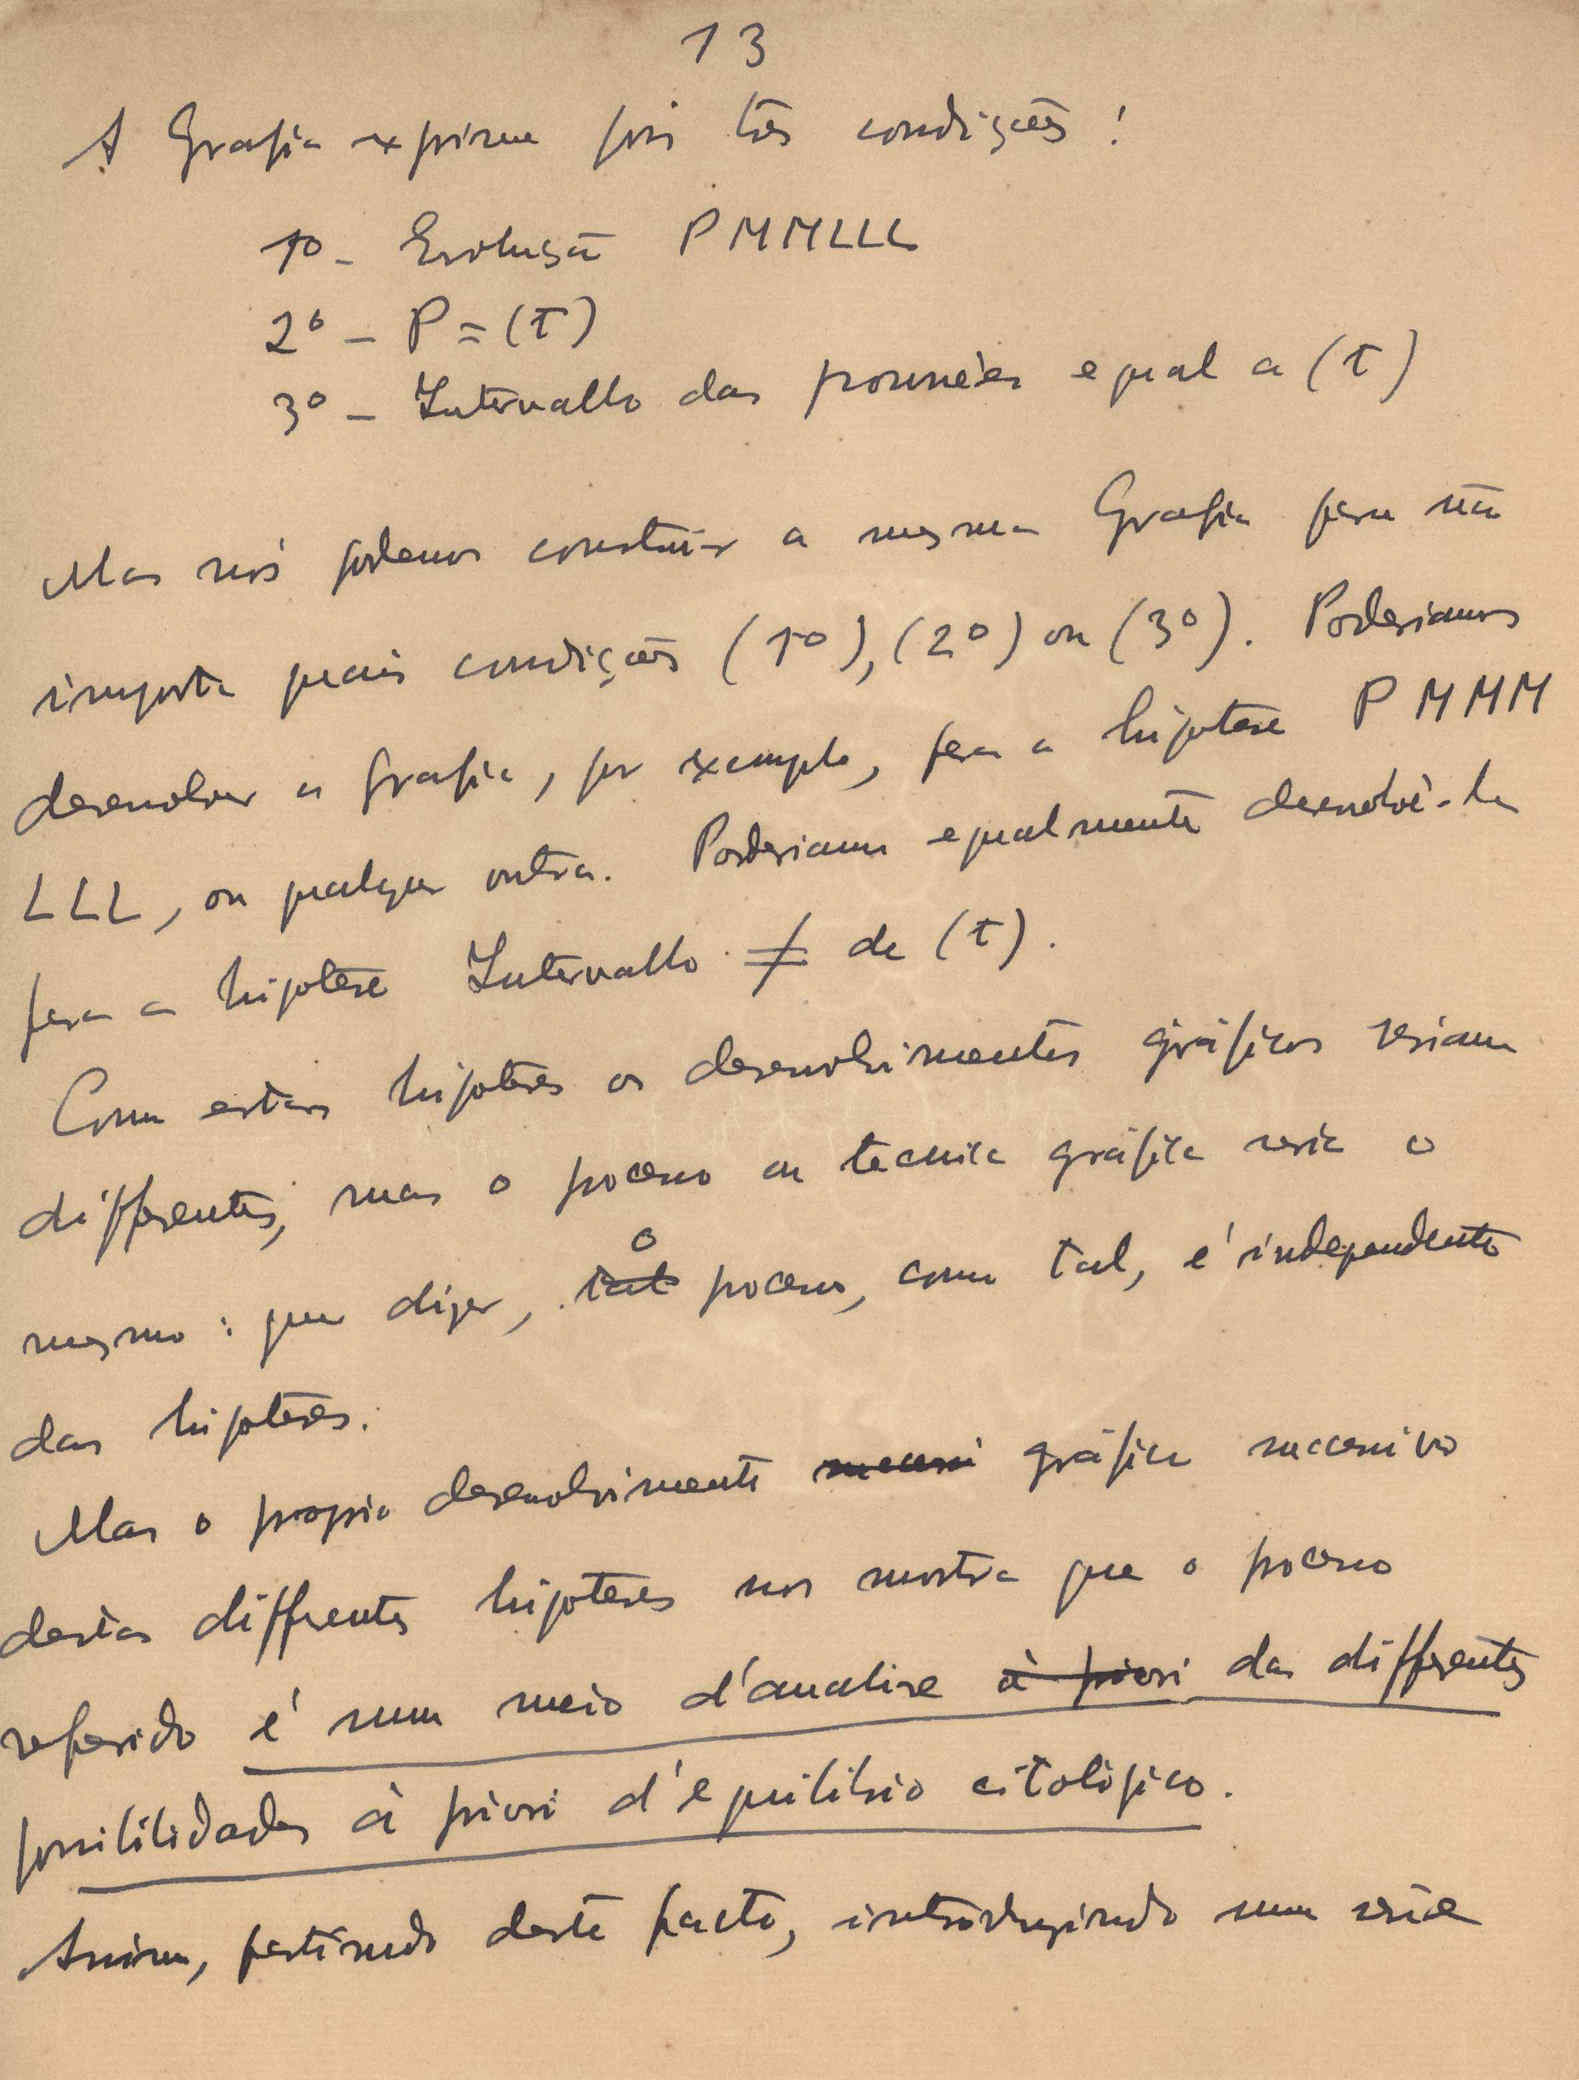 13
A Grafia exprime pois tres condições:
1º - Evolução PMMLLL
2º - P = (τ)
3º - Intervallo das prounées egual a (τ)
Mas nós podemos construir a mesma Grafia para não
importa quaes condições (1º), (2º) ou (3º). Poderiamos
desenvolver a grafia, por exemplo, para a hipotese PMMM
LLL, ou qualquer outra. Poderiamos egualmente desenvolvê-la
para a hipotese Intervallo ≠ de (τ).
Com estas hipoteses os desenvolvimentos gráficos seriam
differentes, mas o processo ou tecnica gráfica seria o
mesmo: quer dizer, o processo, como tal, é independente
das hipoteses.
Mas o proprio desenvolvimento gráfico successivo
destas differentes hipoteses nos mostra que o processo
referido é um meio d'analise das differentes
possibilidades à priori d'equilibrio citológico.
Assim, partindo deste facto, introduzindo uma série